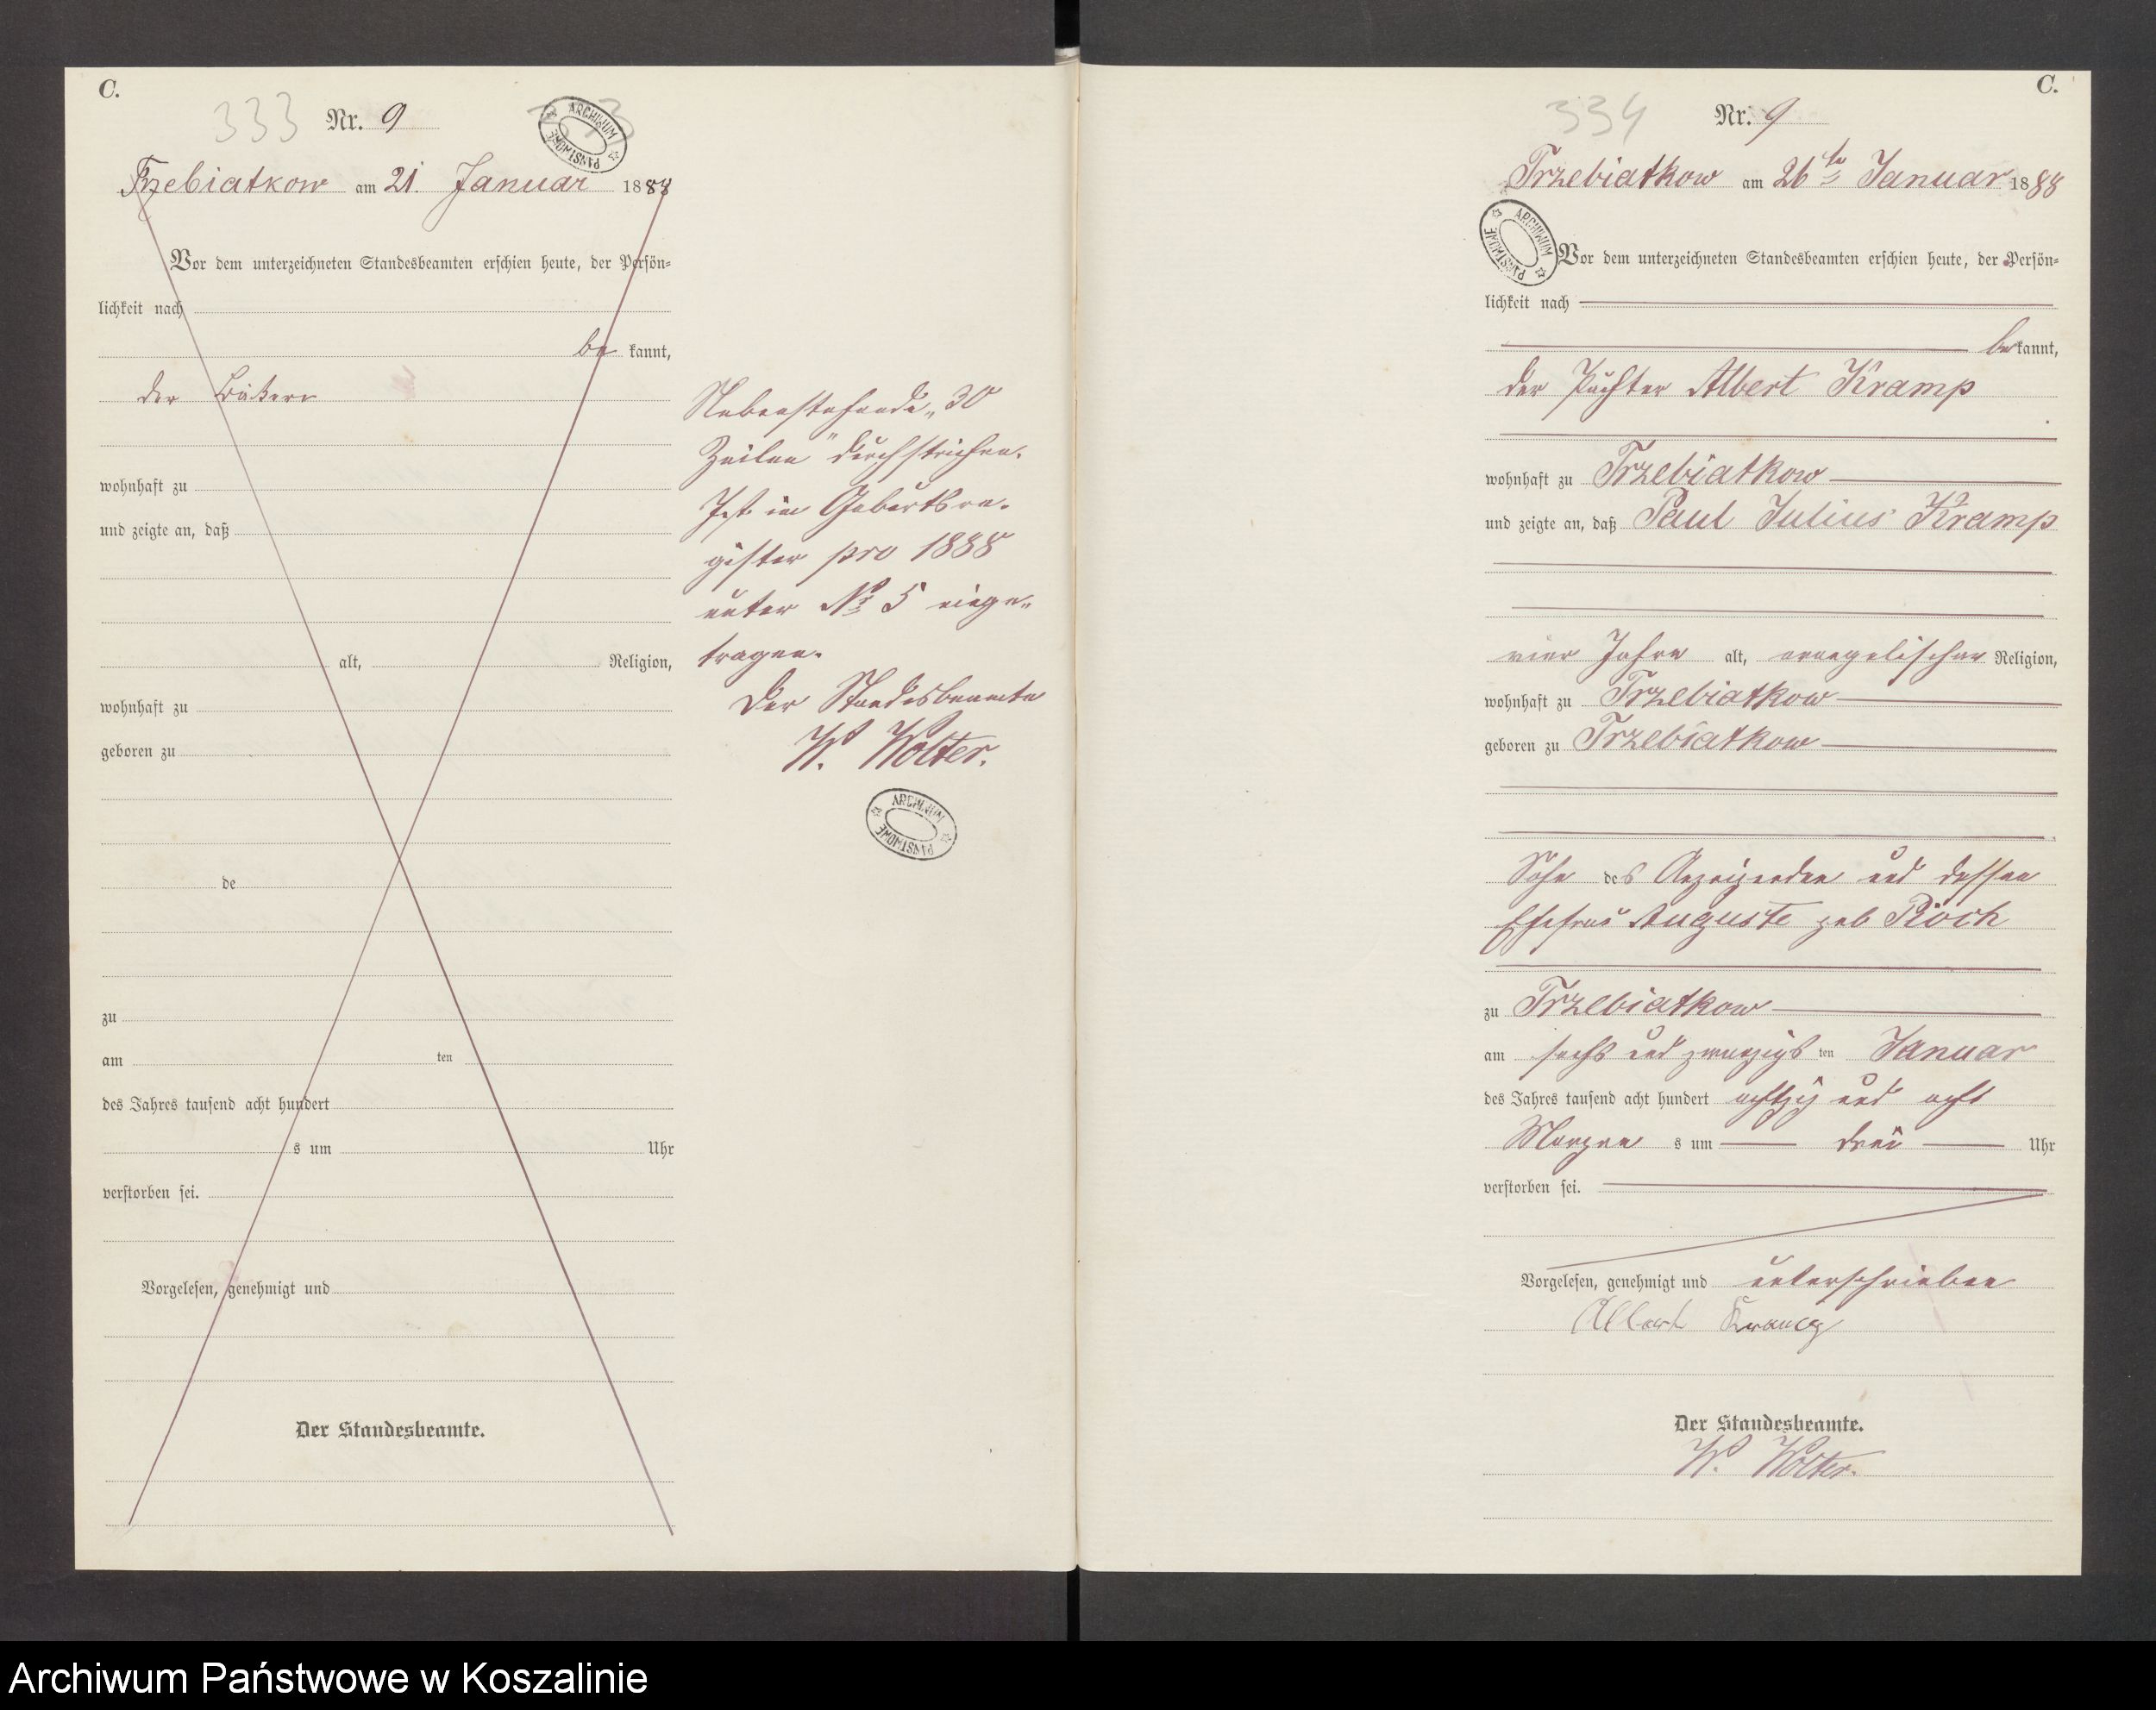 C.
333
Nr. 9
ARCHIWUM PAŃSTWOWE
Trzebiatkow am 21. Januar 1888
Vor dem unterzeichneten Standesbeamten erschien heute, der Persön-
lichkeit nach
be kannt,
der
wohnhaft zu
und zeigte an, daß
alt, Religion,
wohnhaft zu
geboren zu
de
zu
am ten
des Jahres tausend acht hundert
s um Uhr
verstorben sei.
Vorgelesen, genehmigt und
Der Standesbeamte.
Nebenstehende „30
Zeilen" durchstrichen.
Ist im Geburtsre-
gister pro 1888
unter No 5 einge-
tragen.
Der Standesbeamte
W. Wolter.
ARCHIWUM PAŃSTWOWE
C.
334
Nr. 9
Trzebiatkow am 26ten Januar 1888
ARCHIWUM PAŃSTWOWE
Vor dem unterzeichneten Standesbeamten erschien heute, der Persön-
lichkeit nach
be kannt,
der Pächter Albert Kramp
wohnhaft zu Trzebiatkow
und zeigte an, daß Paul Julius Kramp
vier Jahre alt, evangelischer Religion,
wohnhaft zu Trzebiatkow
geboren zu Trzebiatkow
Sohn des Anzeigenden und dessen
Ehefrau Auguste geb
zu Trzebiatkow
am sechs und zwanzigs ten Januar
des Jahres tausend acht hundert achtzig und acht
Morgen s um drei Uhr
verstorben sei.
Vorgelesen, genehmigt und unterschrieben
Albert Kramp
Der Standesbeamte.
W. Wolter.
Archiwum Państwowe w Koszalinie